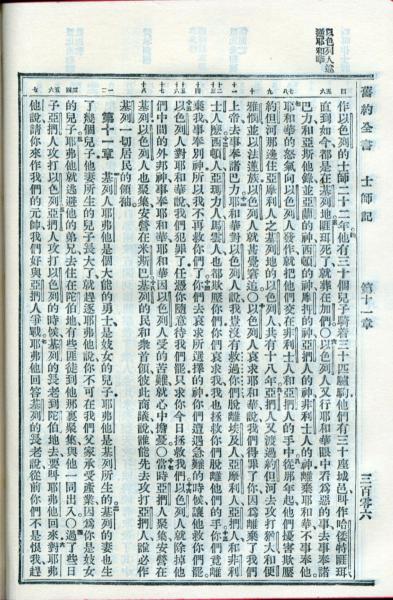 舊約全書 士師記 第十一章 三百零六
作以色列的士師二十二年他有三十個兒子騎着三十匹驢駒他們有三十座城邑叫作哈倭特睚珥
直到如今都是在基列地睚珥死了就葬在加們○以色列人又行耶和華眼中看爲惡的事去事奉諸
巴力和亞斯他錄並亞蘭的神西頓的神摩押的神亞捫人的神非利士人的神離棄耶和華不事奉他
耶和華的怒氣向以色列人發作就把他們交在非利士人和亞捫人的手中從那年起他們擾害欺壓
約但河那邊住亞摩利人之基列地的以色列人共有十八年亞捫人又渡過約但河去攻打猶大和便
雅憫並以法蓮族以色列人就甚覺窘迫○以色列人哀求耶和華說我們得罪了你因爲離棄了我們
上帝去事奉諸巴力耶和華對以色列人說我豈沒有救過你們脫離埃及人亞摩利人亞捫人和非利
士人麼西頓人亞瑪力人馬雲人也都欺壓你們你們哀求我我也拯救你們脫離他們的手你們竟離
棄我事奉別神所以我不再救你們了你們去哀求所選擇的神你們遭遇急難的時候讓他救你們罷
以色列人對耶和華說我們犯罪了任憑你隨意待我們罷只求你今日拯救我們以色列人就除掉他
們中間的外邦神事奉耶和華耶和華因以色列人受的苦難就心中擔憂○當時亞捫人聚集安營在
基列以色列人也聚集安營在米斯巴基列的民和衆首領彼此商議說誰能先去攻打亞捫人誰必作
基列一切居民的領袖
第十一章 基列人耶弗他是個大能的勇士是妓女的兒子耶弗他是基列所生的基列的妻也生
了幾個兒子他妻所生的兒子長大了就趕逐耶弗他說你不可在我們父家承受產業因爲你是妓女
的兒子耶弗他就逃避他的弟兄去住在陀伯地有些匪徒到他那裏聚集與他一同出入○過了些日
子亞捫人攻打以色列亞捫人攻打以色列的時候基列的長老到陀伯地去要叫耶弗他回來對耶弗
他說請你來作我們的元帥我們好與亞捫人爭戰耶弗他回答基列的長老說從前你們不是恨我趕